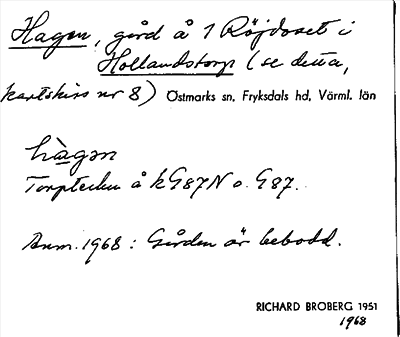 Hagen, gård å 1 Röjdoset i
Hollandstorp (se detta,
kartskiss nr 8) Östmarks sn, Fryksdals hd, Värml. län
hàgən
Torptecken å kG87N o. G87.
Anm. 1968: Gården är bebodd.
RICHARD BROBERG 1951
1968